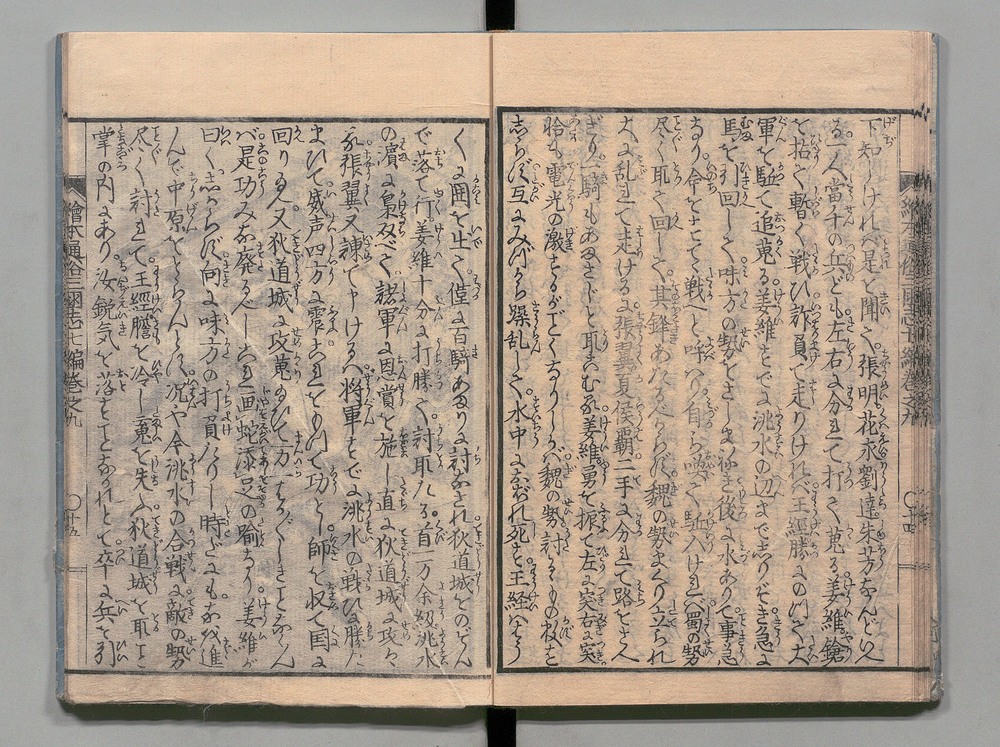 下知しければ是を聞て張明花永劉達朱芳なんどいへ
る一人當千の兵ども左右に分れて打て蒐る姜維鎗
を拈て暫く戦ひ詐負て走りければ王經勝にのつて大
軍を駈て追蒐る姜維すでに洮水の辺まで志りぞき急に
馬を引回して味方の勢をはげまし後に水ありて事急
なり命をすてて戦へと呼はり自ら駈入ければ蜀の勢
尽く取て回して其鋒あたるべからず魏の勢まくり立られ
大に乱れて走ける張翼夏侯霸二手に分れて路をさへ
ぎり一騎もあまさじと取かこむ姜維勇を振て左に突右に突
恰も電光の激するがごとくなりしかば魏の勢討るるもの数を
志らず互にみづから躁乱して水中におぼれ死す王経はやう
やく囲を出て僅に百騎あまりに討なされ狄道城をのぞん
で落て行姜維十分に打勝て討取たる首一万余級洮水
の濱に梟双べて諸軍に恩賞を施し直に狄道城に攻
張翼又諫て申けるは将軍すでに洮水の戦ひに勝た
まひて威声四方に震へりこれをもつて功とし師を収て国に
回りたまへ又狄道城に攻蒐たまひて万一はかばかしきことなくん
ば是功みな廃るべしこれ画蛇添足の喩なり姜維が
曰く志からず向に味方の打負たりし時だにもなほ進
んで中原をとらんとす况や今洮水の合戦に敵の勢
尽く討れて王經膽を冷し蒐を失ふ狄道城を取こと
掌の内にあり汝鋭気を落すことなかれとて卒に兵を引
繪本通俗三國志七編巻之九
繪本通俗三國志七編巻之九
〇十四
〇十五